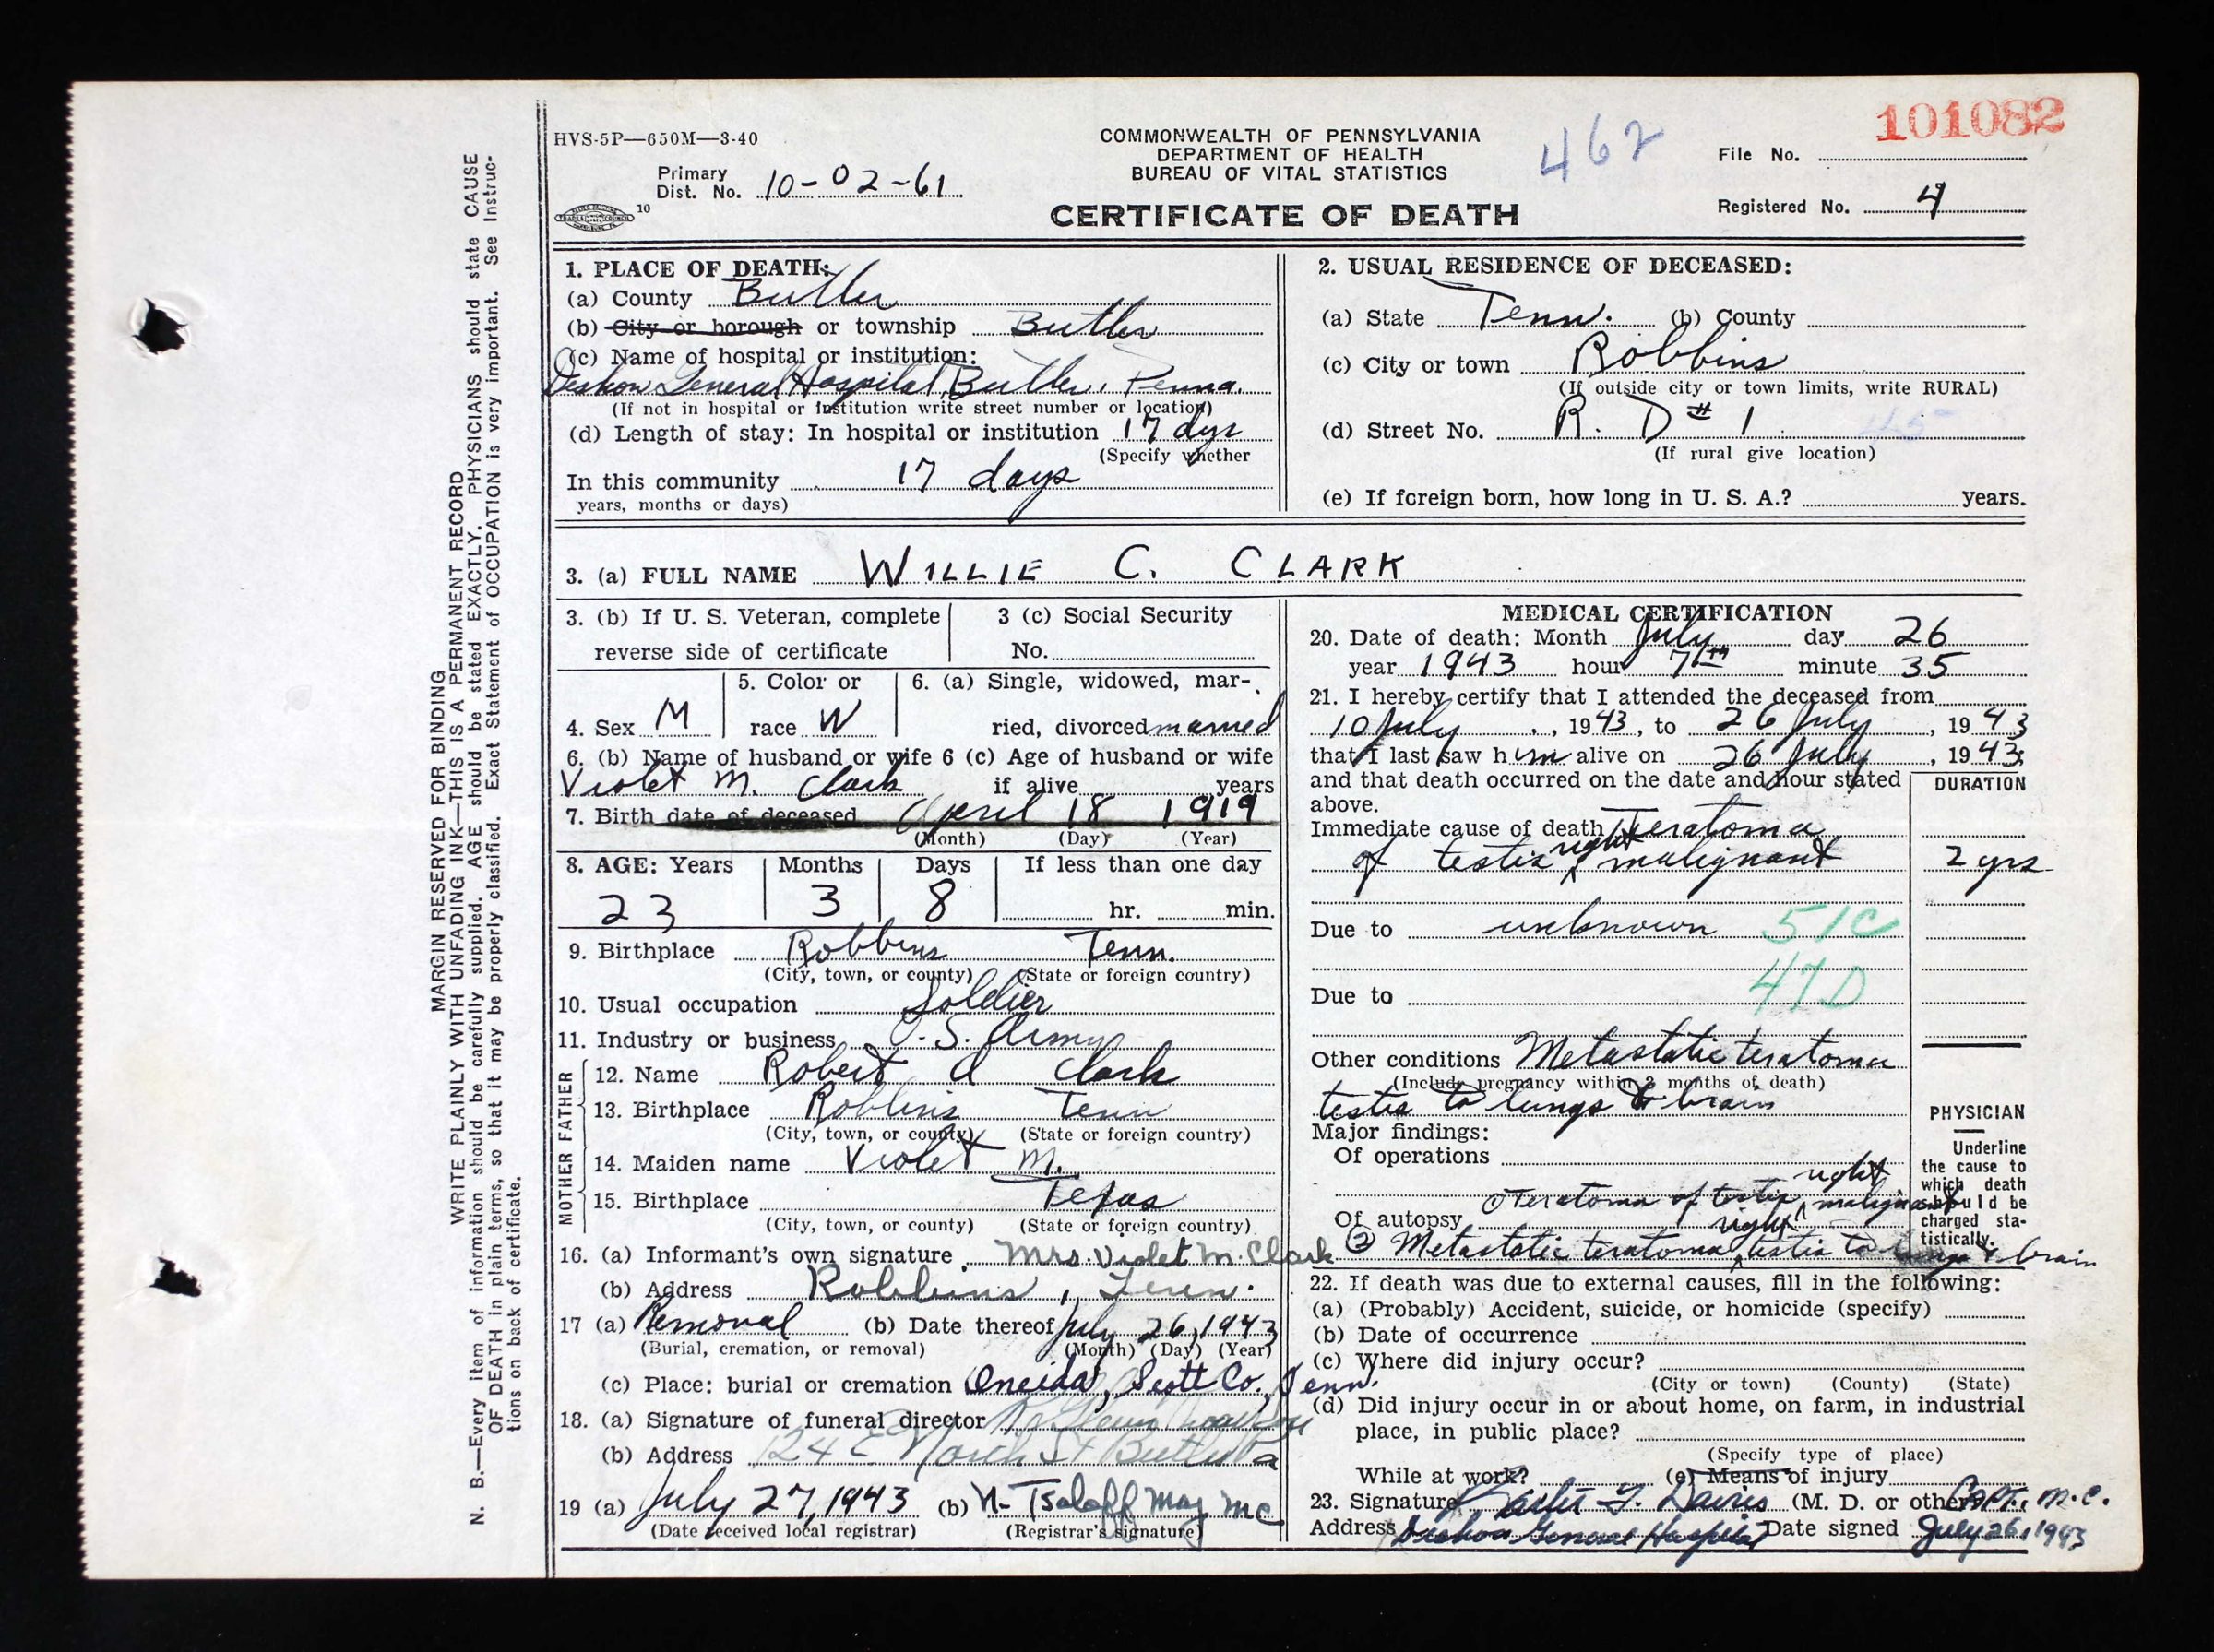 101082
HVS-5P—650M—3-40
COMMONWEALTH OF PENNSYLVANIA
DEPARTMENT OF HEALTH
BUREAU OF VITAL STATISTICS
462
File No.
Primary Dist. No. 10-02-61
10
CERTIFICATE OF DEATH
Registered No. 4
MARGIN RESERVED FOR BINDING
WRITE PLAINLY WITH UNFADING INK—THIS IS A PERMANENT RECORD
N. B.—Every item of information should be carefully supplied. AGE should be stated EXACTLY. PHYSICIANS should state CAUSE
OF DEATH in plain terms, so that it may be properly classified. Exact Statement of OCCUPATION is very important. See Instruc-
tions on back of certificate.
1. PLACE OF DEATH:
(a) County Butler
(b) City or borough or township Butler
(c) Name of hospital or institution:
Deshon General Hospital, Butler, Penna.
(If not in hospital or institution write street number or location)
(d) Length of stay: In hospital or institution 17 days
(Specify whether
In this community 17 days
years, months or days)
2. USUAL RESIDENCE OF DECEASED:
(a) State Tenn. (b) County
(c) City or town Robbins
(If outside city or town limits, write RURAL)
(d) Street No. R. D # 1 45
(If rural give location)
(e) If foreign born, how long in U. S. A.? years.
3. (a) FULL NAME WILLIE C. CLARK
3. (b) If U. S. Veteran, complete
reverse side of certificate
3 (c) Social Security
No.
4. Sex M
5. Color or
race W
6. (a) Single, widowed, mar-
ried, divorced married
6. (b) Name of husband or wife 6 (c) Age of husband or wife
Violet M. Clark if alive years
7. Birth date of deceased April 18 1919
(Month) (Day) (Year)
8. AGE: Years Months Days If less than one day
23 3 8 hr. min.
9. Birthplace Robbins Tenn.
(City, town, or county) (State or foreign country)
10. Usual occupation Soldier
11. Industry or business U.S. Army
FATHER
12. Name Robert d Clark
13. Birthplace Robbins Tenn
(City, town, or county) (State or foreign country)
MOTHER
14. Maiden name Violet M.
15. Birthplace Texas
(City, town, or county) (State or foreign country)
16. (a) Informant's own signature Mrs. Violet M. Clark
(b) Address Robbins, Tenn.
17 (a) Removal (b) Date thereof July 26, 1943
(Burial, cremation, or removal) (Month) (Day) (Year)
(c) Place: burial or cremation Oneida, Scott Co., Tenn.
18. (a) Signature of funeral director
(b) Address 124 E North St Butler Pa
19 (a) July 27, 1943 (b) N. Tsaloff Maj MC
(Date received local registrar) (Registrar's signature)
MEDICAL CERTIFICATION
20. Date of death: Month July day 26
year 1943 hour 7th minute 35
21. I hereby certify that I attended the deceased from
10 July, 1943, to 26 July, 1943
that I last saw him alive on 26 July, 1943;
and that death occurred on the date and hour stated
above.
DURATION
Immediate cause of death Teratoma
of testis right malignant 2 yrs
Due to unknown 51C
47D
Due to
Other conditions Metastatic teratoma
(Include pregnancy within 3 months of death)
testis to lungs & brain
Major findings:
Of operations
Of autopsy ① Teratoma of testis, right malignant
② Metastatic teratoma, right testis to lungs & brain
PHYSICIAN
Underline
the cause to
which death
should be
charged sta-
tistically.
22. If death was due to external causes, fill in the following:
(a) (Probably) Accident, suicide, or homicide (specify)
(b) Date of occurrence
(c) Where did injury occur?
(City or town) (County) (State)
(d) Did injury occur in or about home, on farm, in industrial
place, in public place?
(Specify type of place)
While at work? (e) Means of injury
23. Signature Davis (M. D. or other) Capt., M.C.
Address Deshon General Hospital Date signed July 26, 1943